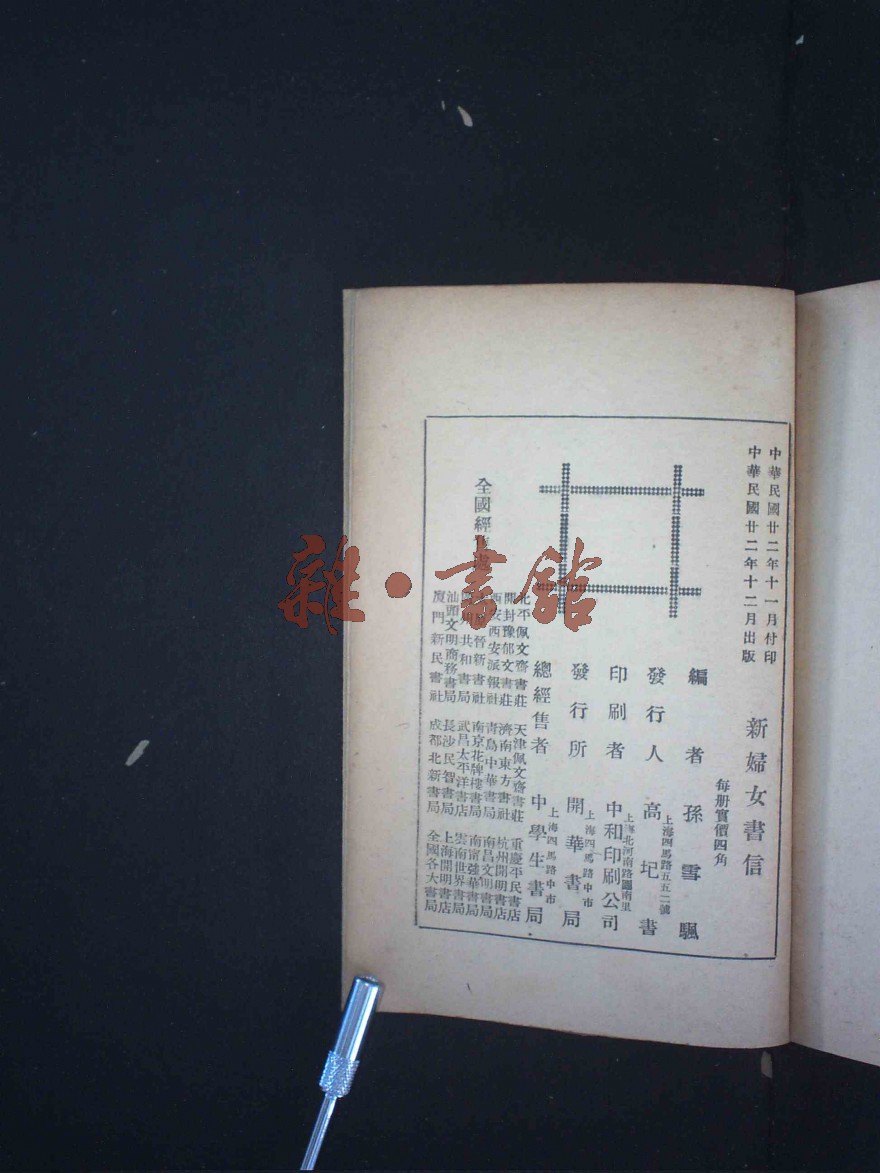 中華民國廿二年十一月付印
中華民國廿二年十二月出版
新婦女書信
每册實價四角
編者 孫雪飄
發行人 高圮書
上海四馬路五五二號
印刷者 中和印刷公司
上海北河南路圖南里
發行所 開華書局
上海四馬路中市
總經售者 中學生書局
上海四馬路中市
全國經售處
北平佩文齋書莊 天津佩文齋書莊 重慶平民書店
開封豫郁文書莊 濟南東方書社 杭州開明書店
西安西安派報社 青島中華書局 南昌文明書局
晉新書社 南京花牌樓書局 南甯強華書局
州共和書局 武昌太平洋書店 雲南世界書局
汕頭文明商務書局 長沙民智書局 上海開明書店
廈門新民書社 成都北新書局 全國各大書局
雜·書館